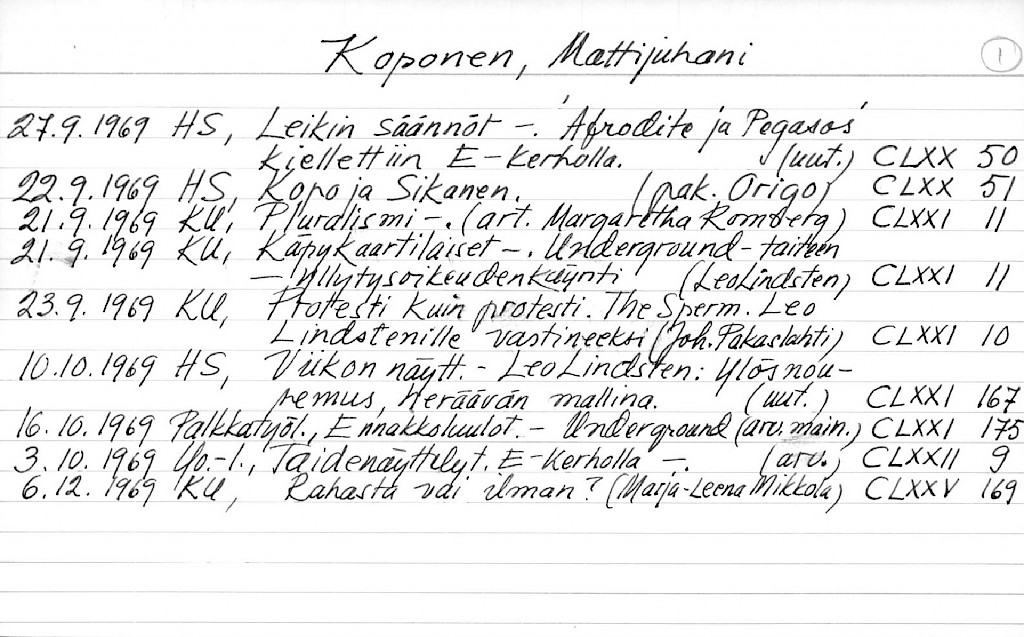 Koponen, Mattijuhani 1
27.9.1969 HS, Leikin säännöt -. 'Afrodite ja Pegasos'
kiellettiin E-kerholla. (uut.) CLXX 50
22.9.1969 HS, Kopo ja Sikanen. (pak. Origo) CLXX 51
21.9.1969 KU, Pluralismi -. (art. Margaretha Romberg) CLXXI 11
21.9.1969 KU, Käpykaartilaiset -. Underground-taiteen
- yllytysoikeudenkäynti (Leo Lindsten) CLXXI 11
23.9.1969 KU, Protesti kuin protesti. The Sperm. Leo
Lindstenille vastineeksi (Joh. Pakaslahti) CLXXI 10
10.10.1969 HS, Viikon näytt. - Leo Lindsten: Ylösnou-
semus, heräävän mallina. (uut.) CLXXI 167
16.10.1969 Palkkatyöl., Ennakkoluulot. - Underground (arv. main.) CLXXI 175
3.10.1969 Yo.-l., Taidenäyttelyt. E-kerholla -. (arv.) CLXXII 9
6.12.1969 KU, Rahasta vai ilman? (Marja-Leena Mikkola) CLXXV 169